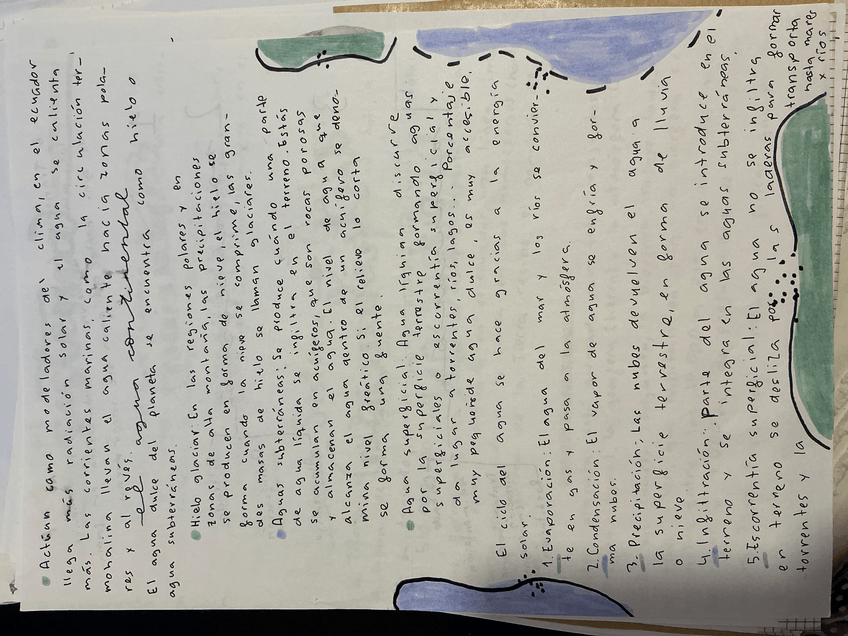 Actúan como modeladores del clima, en el ecuador
llega más radiación solar y el agua se calienta
más. Las corrientes marinas, como la circulación ter-
mohalina llevan el agua caliente hacia zonas pola-
res y al revés.
el agua continental
El agua dulce del planeta se encuentra como hielo o
agua subterráneas.
Hielo glaciar: En las regiones polares y en
zonas de alta montaña, las precipitaciones
se producen en forma de nieve, el hielo se
forma cuando la nieve se comprime, las gran-
des masas de hielo se llaman glaciares.
Aguas subterráneas: Se produce cuándo una parte
de agua líquida se infiltra en el terreno. Estás
se acumulan en acuíferos, que son rocas porosas
y almacenan el agua. El nivel de agua que
alcanza el agua dentro de un acuífero se deno-
mina nivel freático. Si el relieve lo corta
se forma una fuente.
Agua superficial: Agua líquida discurre
por la superficie terrestre formando aguas
superficiales o escorrentía superficial y
da lugar a torrentes, ríos, lagos... Porcentaje
muy pequeño de agua dulce, es muy accesible.
El ciclo del agua se hace gracias a la energía
solar.
1. Evaporación: El agua del mar y los ríos se convier-
te en gas y pasa a la atmósfera.
2. Condensación: El vapor de agua se enfría y for-
ma nubes.
3. Precipitación; Las nubes devuelven el agua a
la superficie terrestre, en forma de lluvia
o nieve
4. Infiltración: Parte del agua se introduce en el
terreno y se integra en las aguas subterráneas.
5. Escorrentía superficial: El agua no se infiltra
en terreno se desliza por las laderas para formar
torrentes y la transporta
hasta mares
y ríos